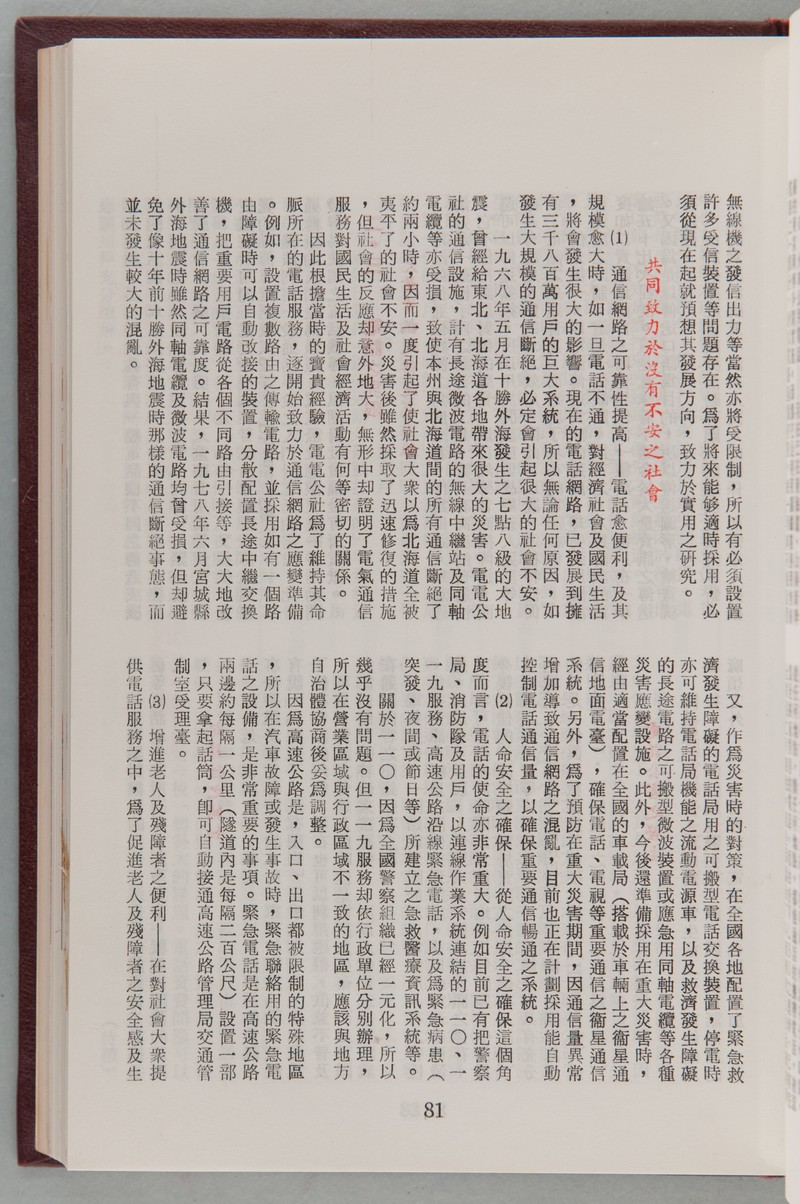 無線機之發信出力等當然亦將受限制，所以有必須設置
許多受信裝置等問題存在。爲了將來能够適時採用，必
須從現在起就預想其發展方向，致力於實用之研究。
共同致力於沒有不安之社會
(1) 通信網路之可靠性提高——電話愈便利，及其
規模愈大時，如一旦電話不通，對經濟社會及國民生活
，將會發生很大的影響。現在的電話網路，已發展到擁
有三千八百萬用戶的巨大系統，所以無論任何原因，如
發生大規模的通信斷絕，必定會引起很大的社會不安。
一九六八年五月在十勝外海發生之七點八級的大地
震，曾經給東北、北海道各地帶來很大的災害。電電公
社的通信設施，計有長途微波電路的無線中繼站及同軸
電纜等亦受損，致使本州與北海道間的所有通信斷絕了
約兩小時，因而一度引起了使社會大衆以爲北海道全被
夷平了的社會不安。災害後雖然採取了迅速修復的措施
，但社會的反應却意外地大，無形中却證明了電氣通信
服務對國民生活及社會經濟活動有何等密切的關係。
因此根據當時的寶貴經驗，電電公社爲了維持其命
脈所在的電話服務，逐開始致力於通信網路之應變準備
。例如，設置複數路由之傳輸電路，並採用如有一個路
由障礙時可以自動改接的裝置，分散配置長途中繼交換
機，把重要用戶電路從各個不同路由引接等，大大地改
善了通信網路之可靠度。結果，一九七八年六月宮城縣
外海地震時雖然同軸電纜及微波電路均曾受損，但却避
免了像十年前十勝外海地震時那樣的通信斷絕事態，而
並未發生較大的混亂。
又，作爲災害時的對策，在全國各地配置了緊急救
濟發生障礙的電話局用之可搬型電話交換裝置，停電時
亦可維持電話局機能之流動電源車，以及救濟發生障礙
的長途電路之可搬型微波裝置或應急用同軸電纜等各種
災害應變設施。此外，今後還準備採用在重大災害時，
經由適當配置在全國的車載局（搭載於車輛上之衞星通
信地面電臺），確保電話、電視等重要通信之衞星通信
系統。另外，爲了預防在重大災害期間，因通信量異常
增加導致通信網路之混亂，目前也正在計劃採用能自動
控制電話通信量，以確保重要通信暢通之系統。
(2) 人命安全之確保——從人命安全之確保這個角
度而言，電話的使命亦非常重大。例如目前已有把警察
局、消防隊及用戶，以連線作業系統連結的一一〇、一
一九服務、高速公路沿線緊急電話，以及爲緊急病患（
突發、夜間或節日等）所建立之急救醫療資訊系統等。
關於一一〇，因爲全國警察組織已經一元化，所以
幾乎沒有問題。但一一九服務却依行政單位分別辦理，
所以在營業區域與行政區域不一致的地區，應該與地方
自治體協商後妥爲調整。
因爲高速公路是，入口、出口都被限制的特殊地區
，所以在汽車故障或發生事故時，緊急聯絡用的緊急電
話之設備，是非常重要的事項。緊急電話是在高速公路
兩邊約每隔一公里（隧道內是每隔二百公尺）設置一部
，只要拿起話筒，卽可自動接通高速公路管理局交通管
制室受理臺。
(3) 增進老人及殘障者之便利——在對社會大衆提
供電話服務之中，爲了促進老人及殘障者之安全感及生
81